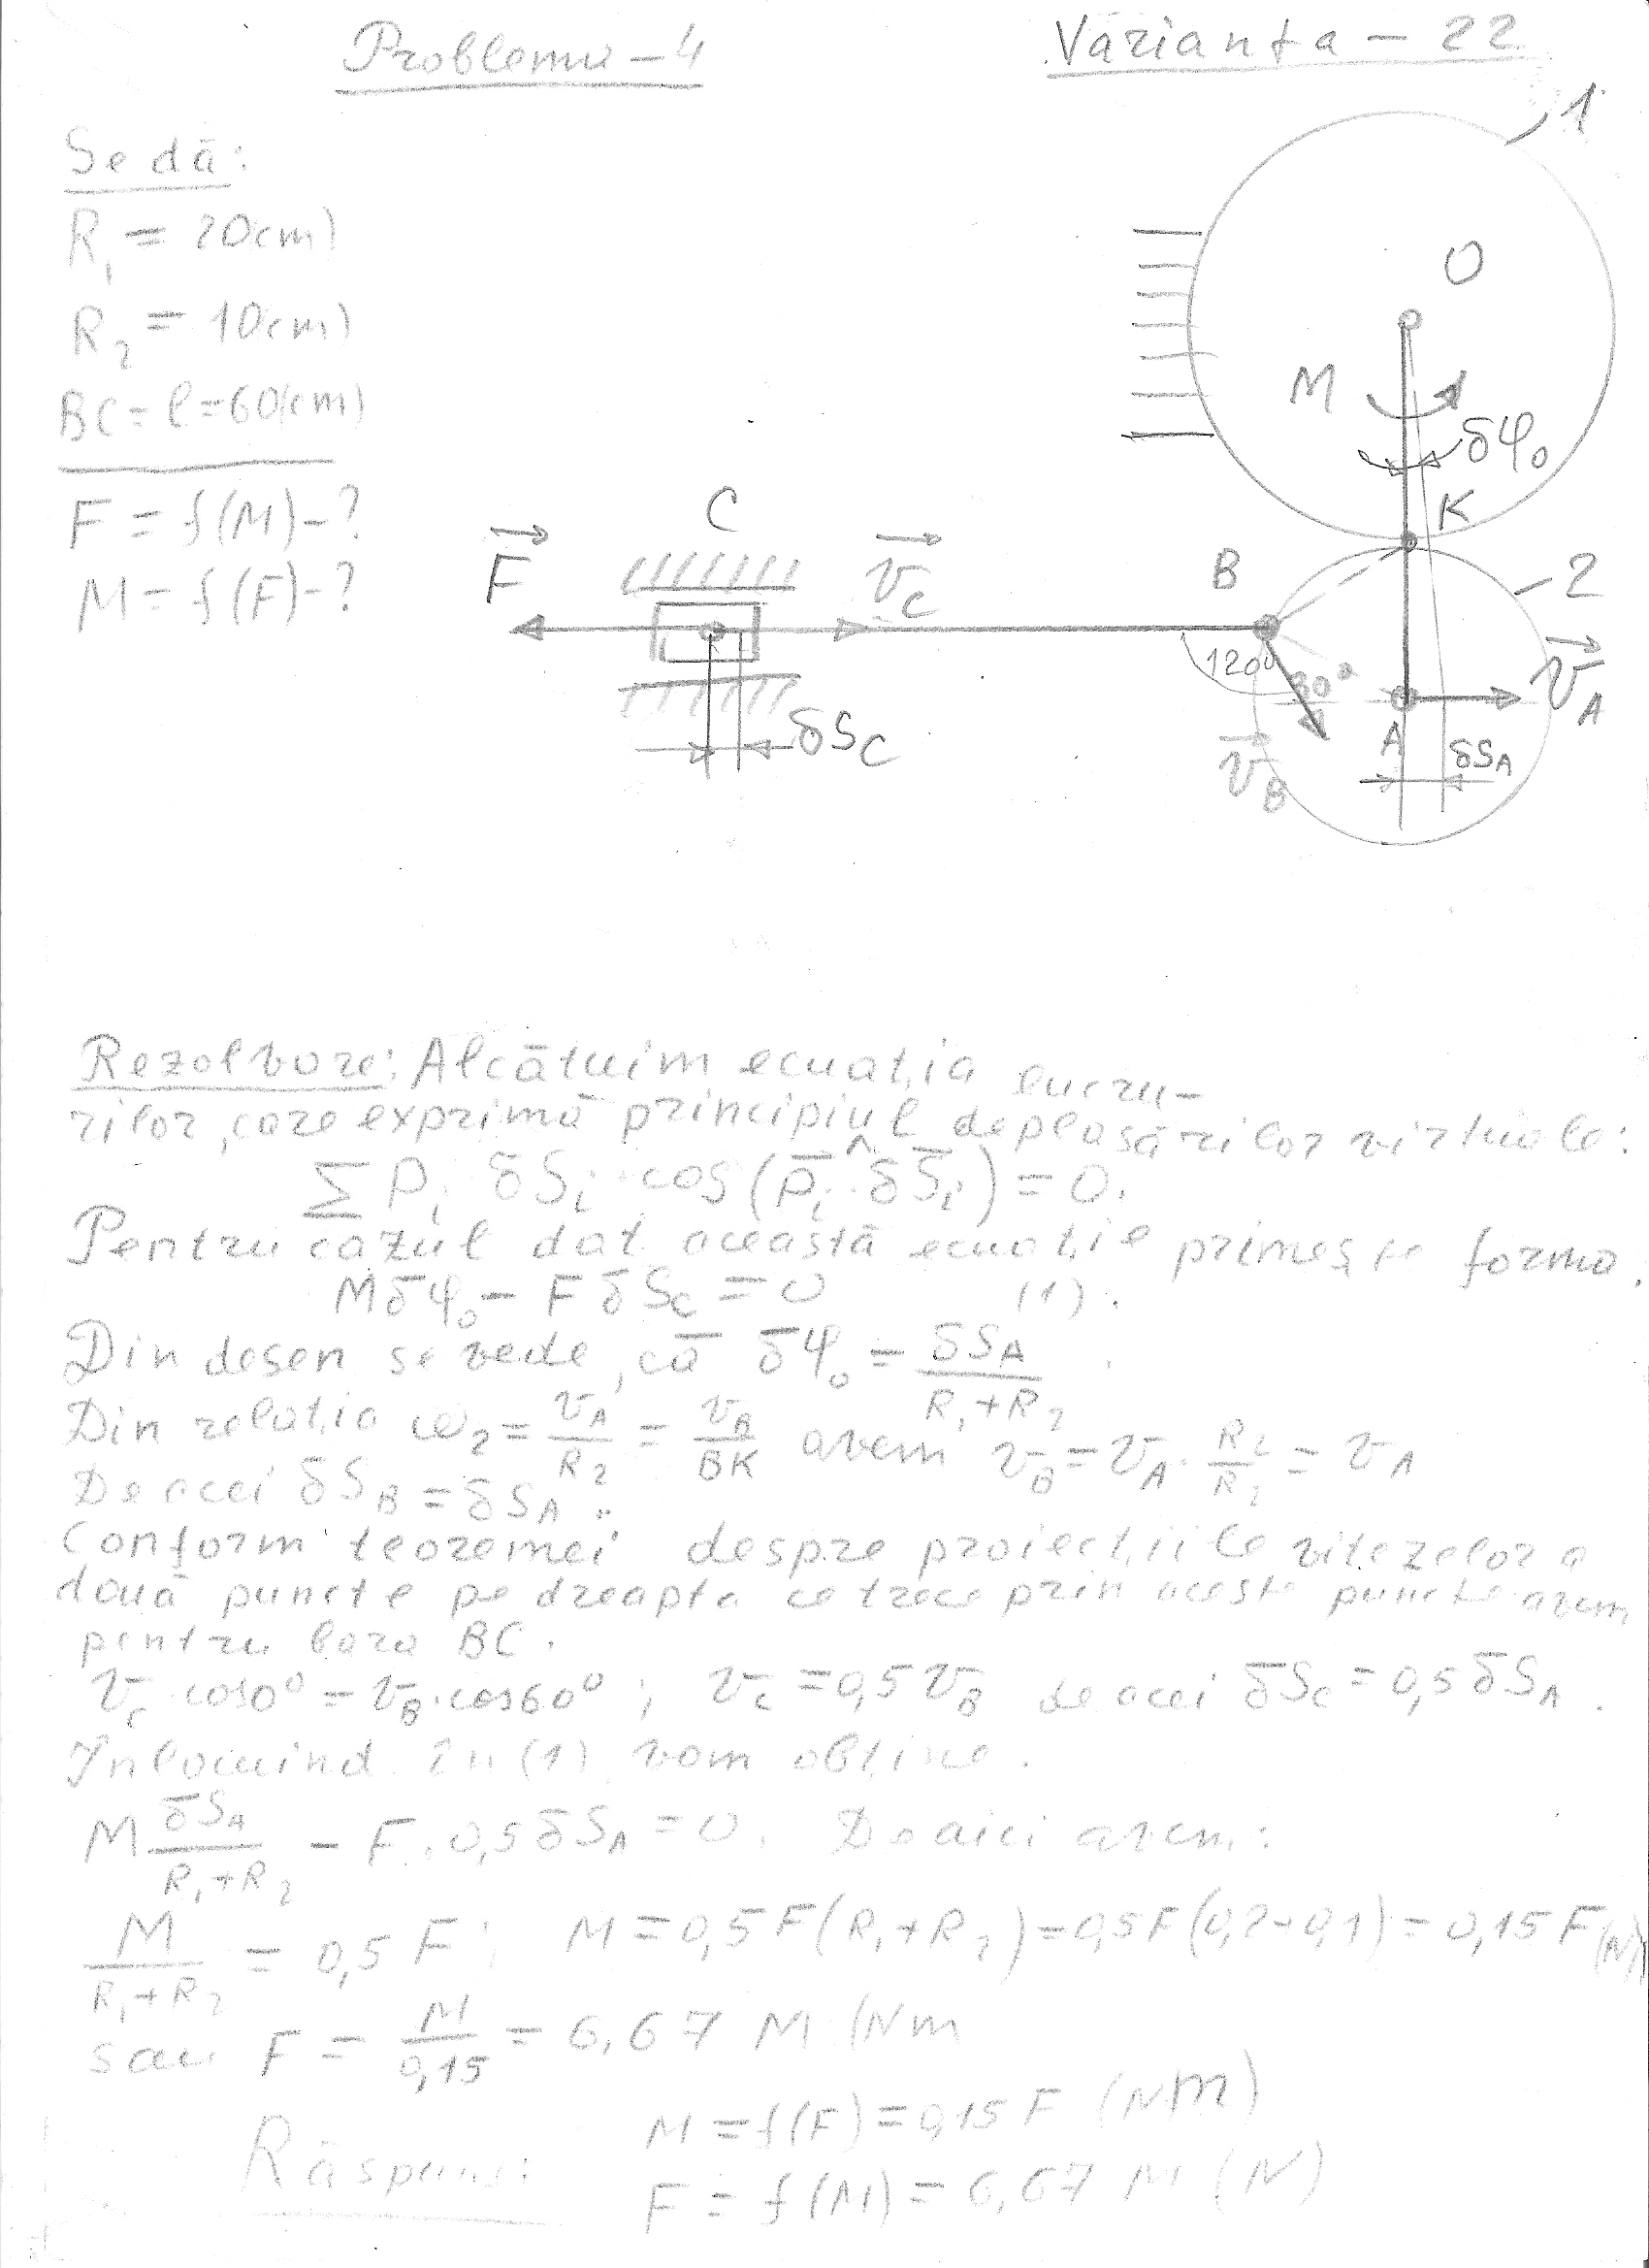 Problema-4
Varianta-22
Se dă:
R₁ = 20(cm)
R₂ = 10(cm)
BC = l = 60(cm)
F = f(M)-?
M = f(F)-?
1
O
M
δφ₀
K
C
F
v_C
B
2
120°
30°
v_A
A
v_B
δS_C
δS_A
Rezolvare: Alcătuim ecuația lucru-
rilor, care exprimă principiul deplasărilor virtuale:
∑ Pᵢ δSᵢ · cos(P̄ᵢ ^ δS̄ᵢ) = 0.
Pentru cazul dat această ecuație primește forma.
Mδφ₀ - FδS_C = 0 (1).
Din desen se vede, că δφ₀ = δS_A / (R₁+R₂).
Din relația ω₂ = v_A/R₂ = v_B/BK avem v_B = v_A · R₂/R₂ = v_A
De aceí δS_B = δS_A.
Conform teoremei despre proiecțiile vitezelor a
două puncte pe dreapta ce trece prin aceste puncte avem
pentru bara BC.
v_C cos0° = v_B · cos60° ; v_C = 0,5 v_B de aceí δS_C = 0,5 δS_A.
Înlocuind în (1) vom obține.
M δS_A/(R₁+R₂) - F · 0,5 δS_A = 0. De aici avem:
M/(R₁+R₂) = 0,5 F ; M = 0,5 F(R₁+R₂) = 0,5F(0,2+0,1) = 0,15 F (N)
sau F = M/0,15 = 6,67 M (Nm
Răspuns: M = f(F) = 0,15 F (Nm)
F = f(M) = 6,67 M (N)